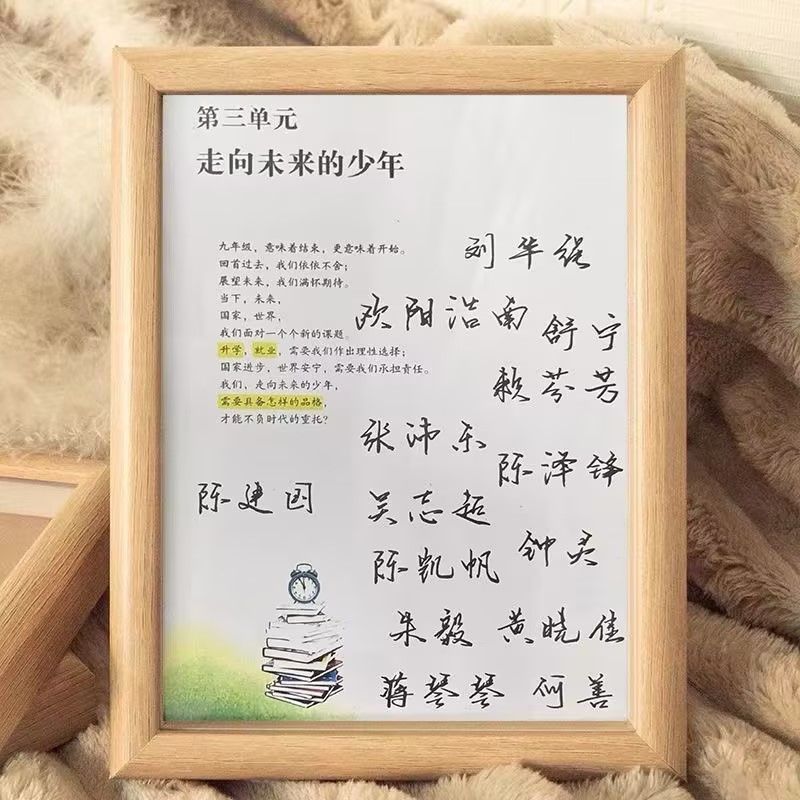 第三单元
走向未来的少年
九年级，意味着结束，更意味着开始。
回首过去，我们依依不舍；
展望未来，我们满怀期待。
当下，未来，
国家，世界，
我们面对一个个新的课题。
升学，就业，需要我们作出理性选择；
国家进步，世界安宁，需要我们承担责任。
我们，走向未来的少年，
需要具备怎样的品格，
才能不负时代的重托？
刘华强
欧阳浩南
舒宁
赖芬芳
张沛乐
陈泽锋
陈建国
吴志超
钟灵
陈凯帆
朱毅 黄晓佳
蒋琴琴 何善